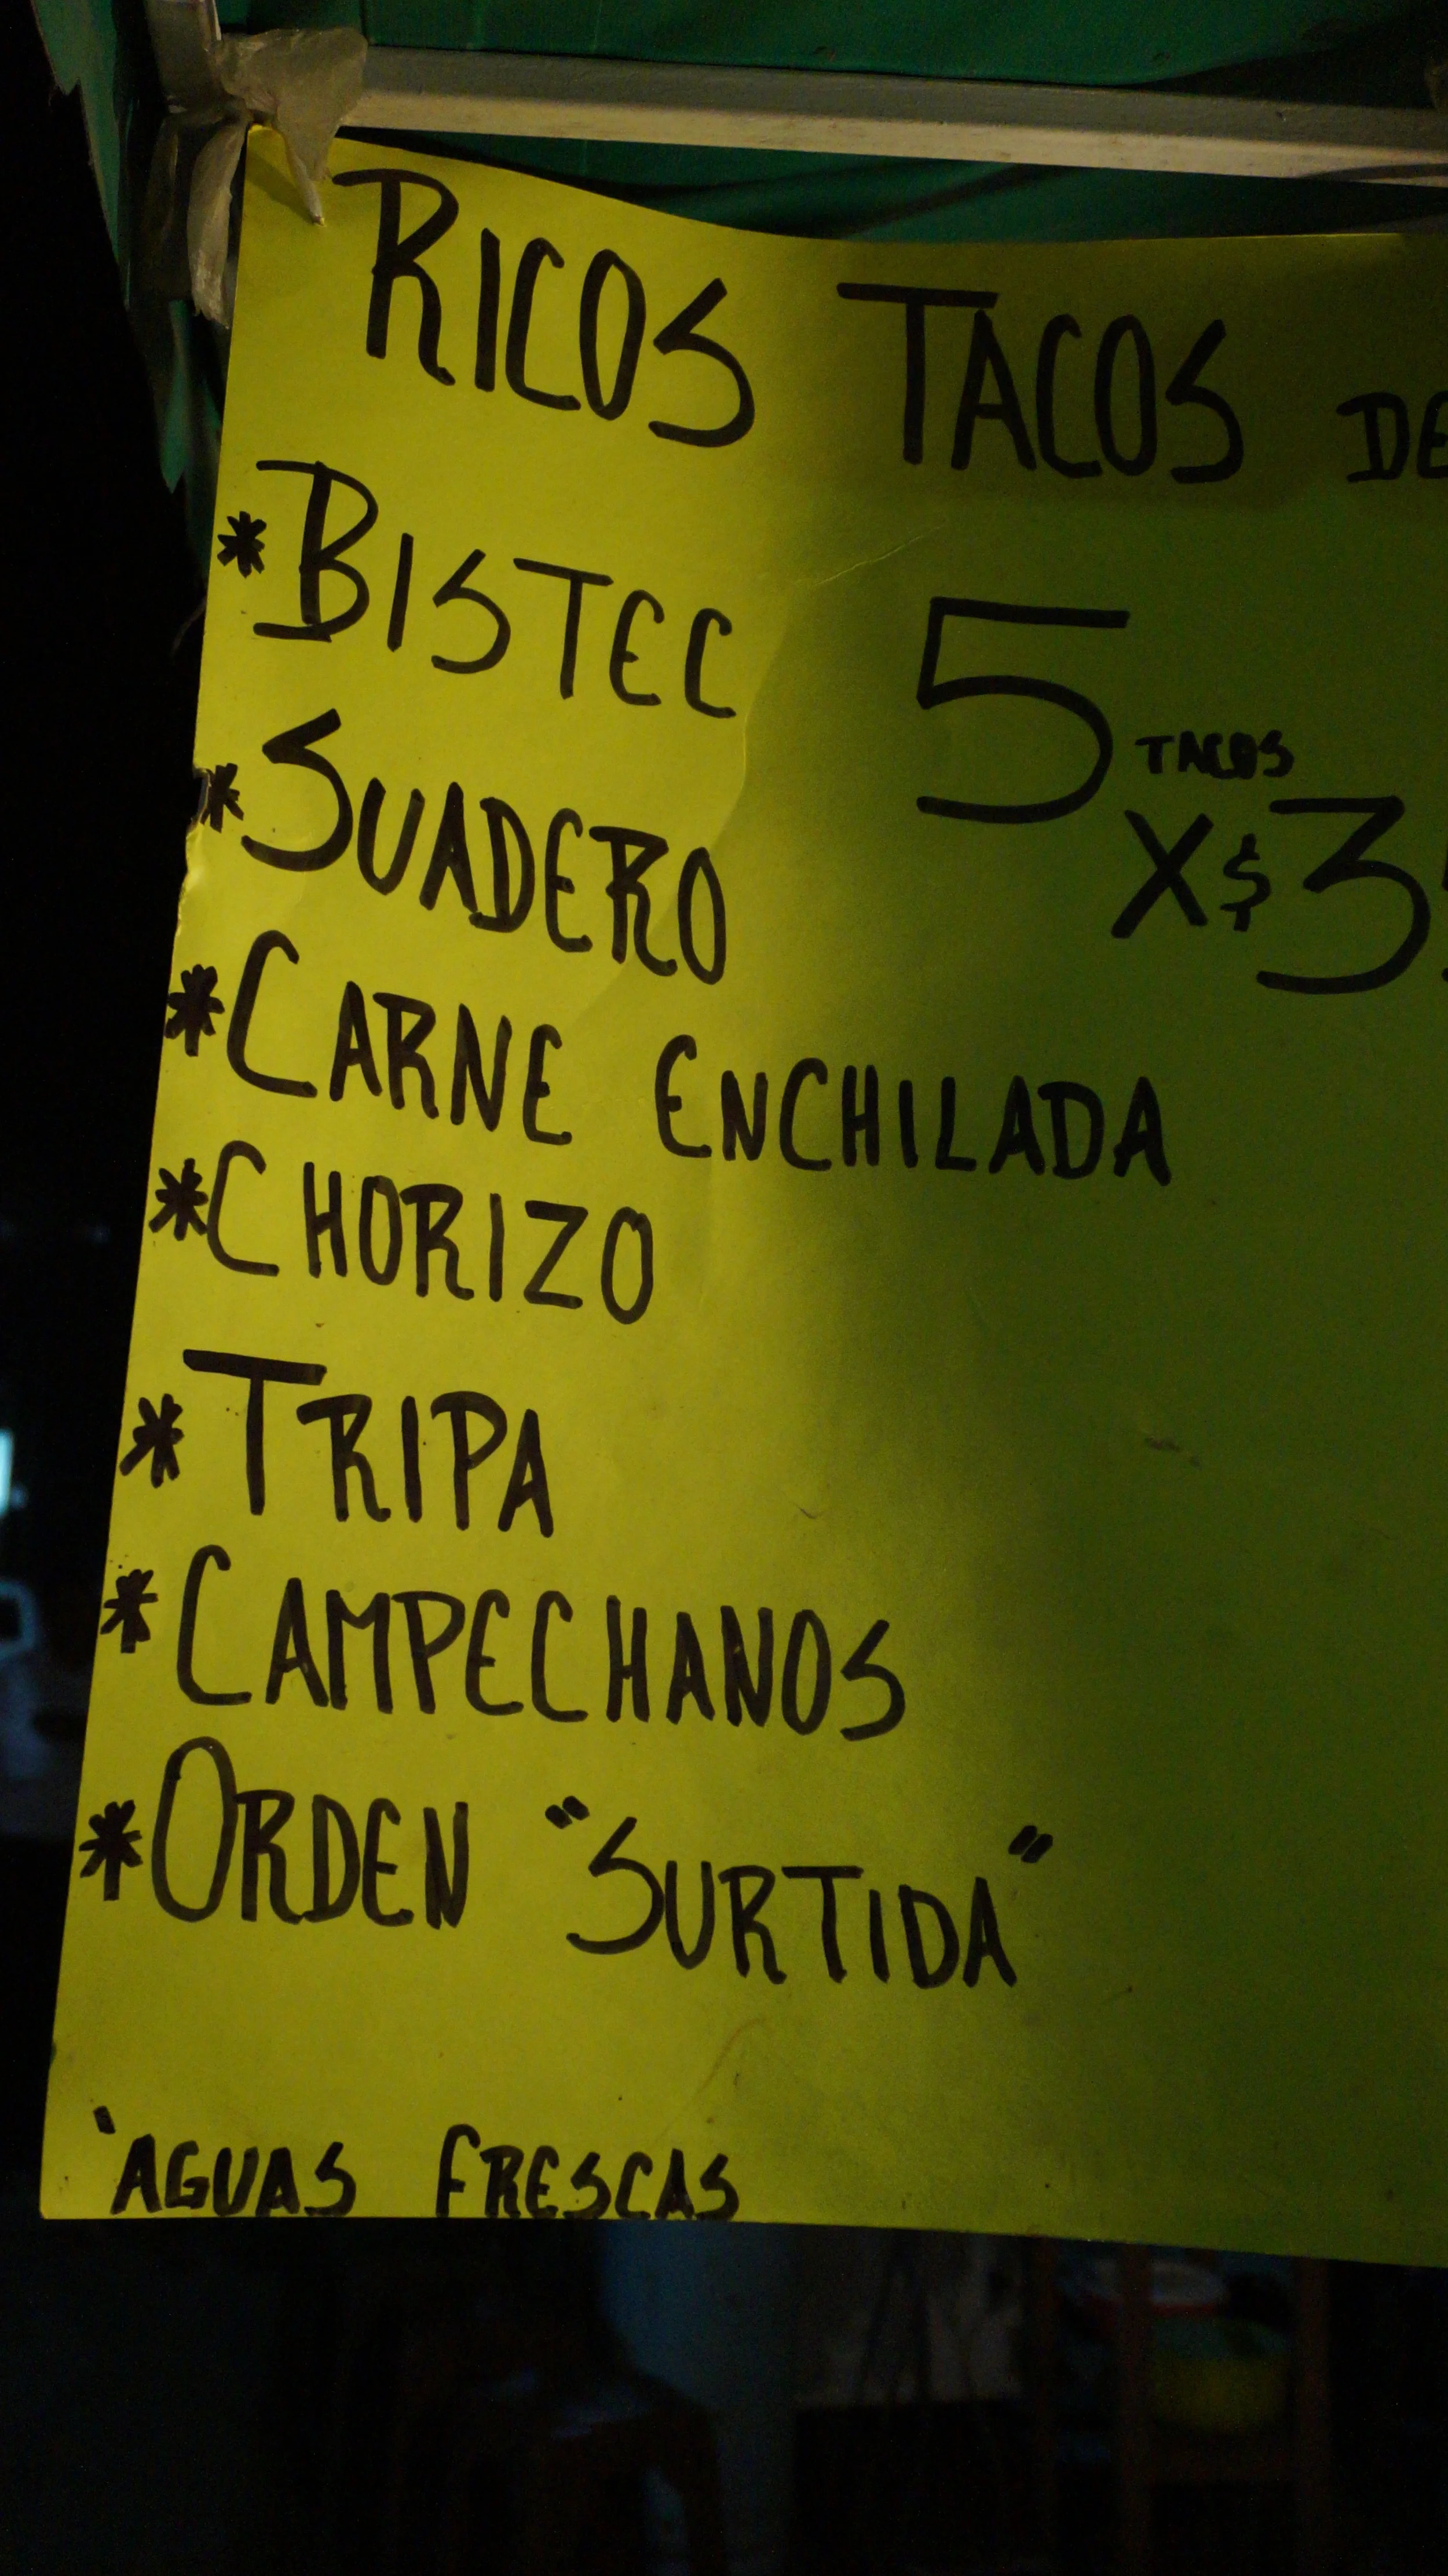 RICOS TACOS DE
*BISTEC
5 TACOS
X$3
*SUADERO
*CARNE ENCHILADA
*CHORIZO
*TRIPA
*CAMPECHANOS
*ORDEN "SURTIDA"
'AGUAS FRESCAS